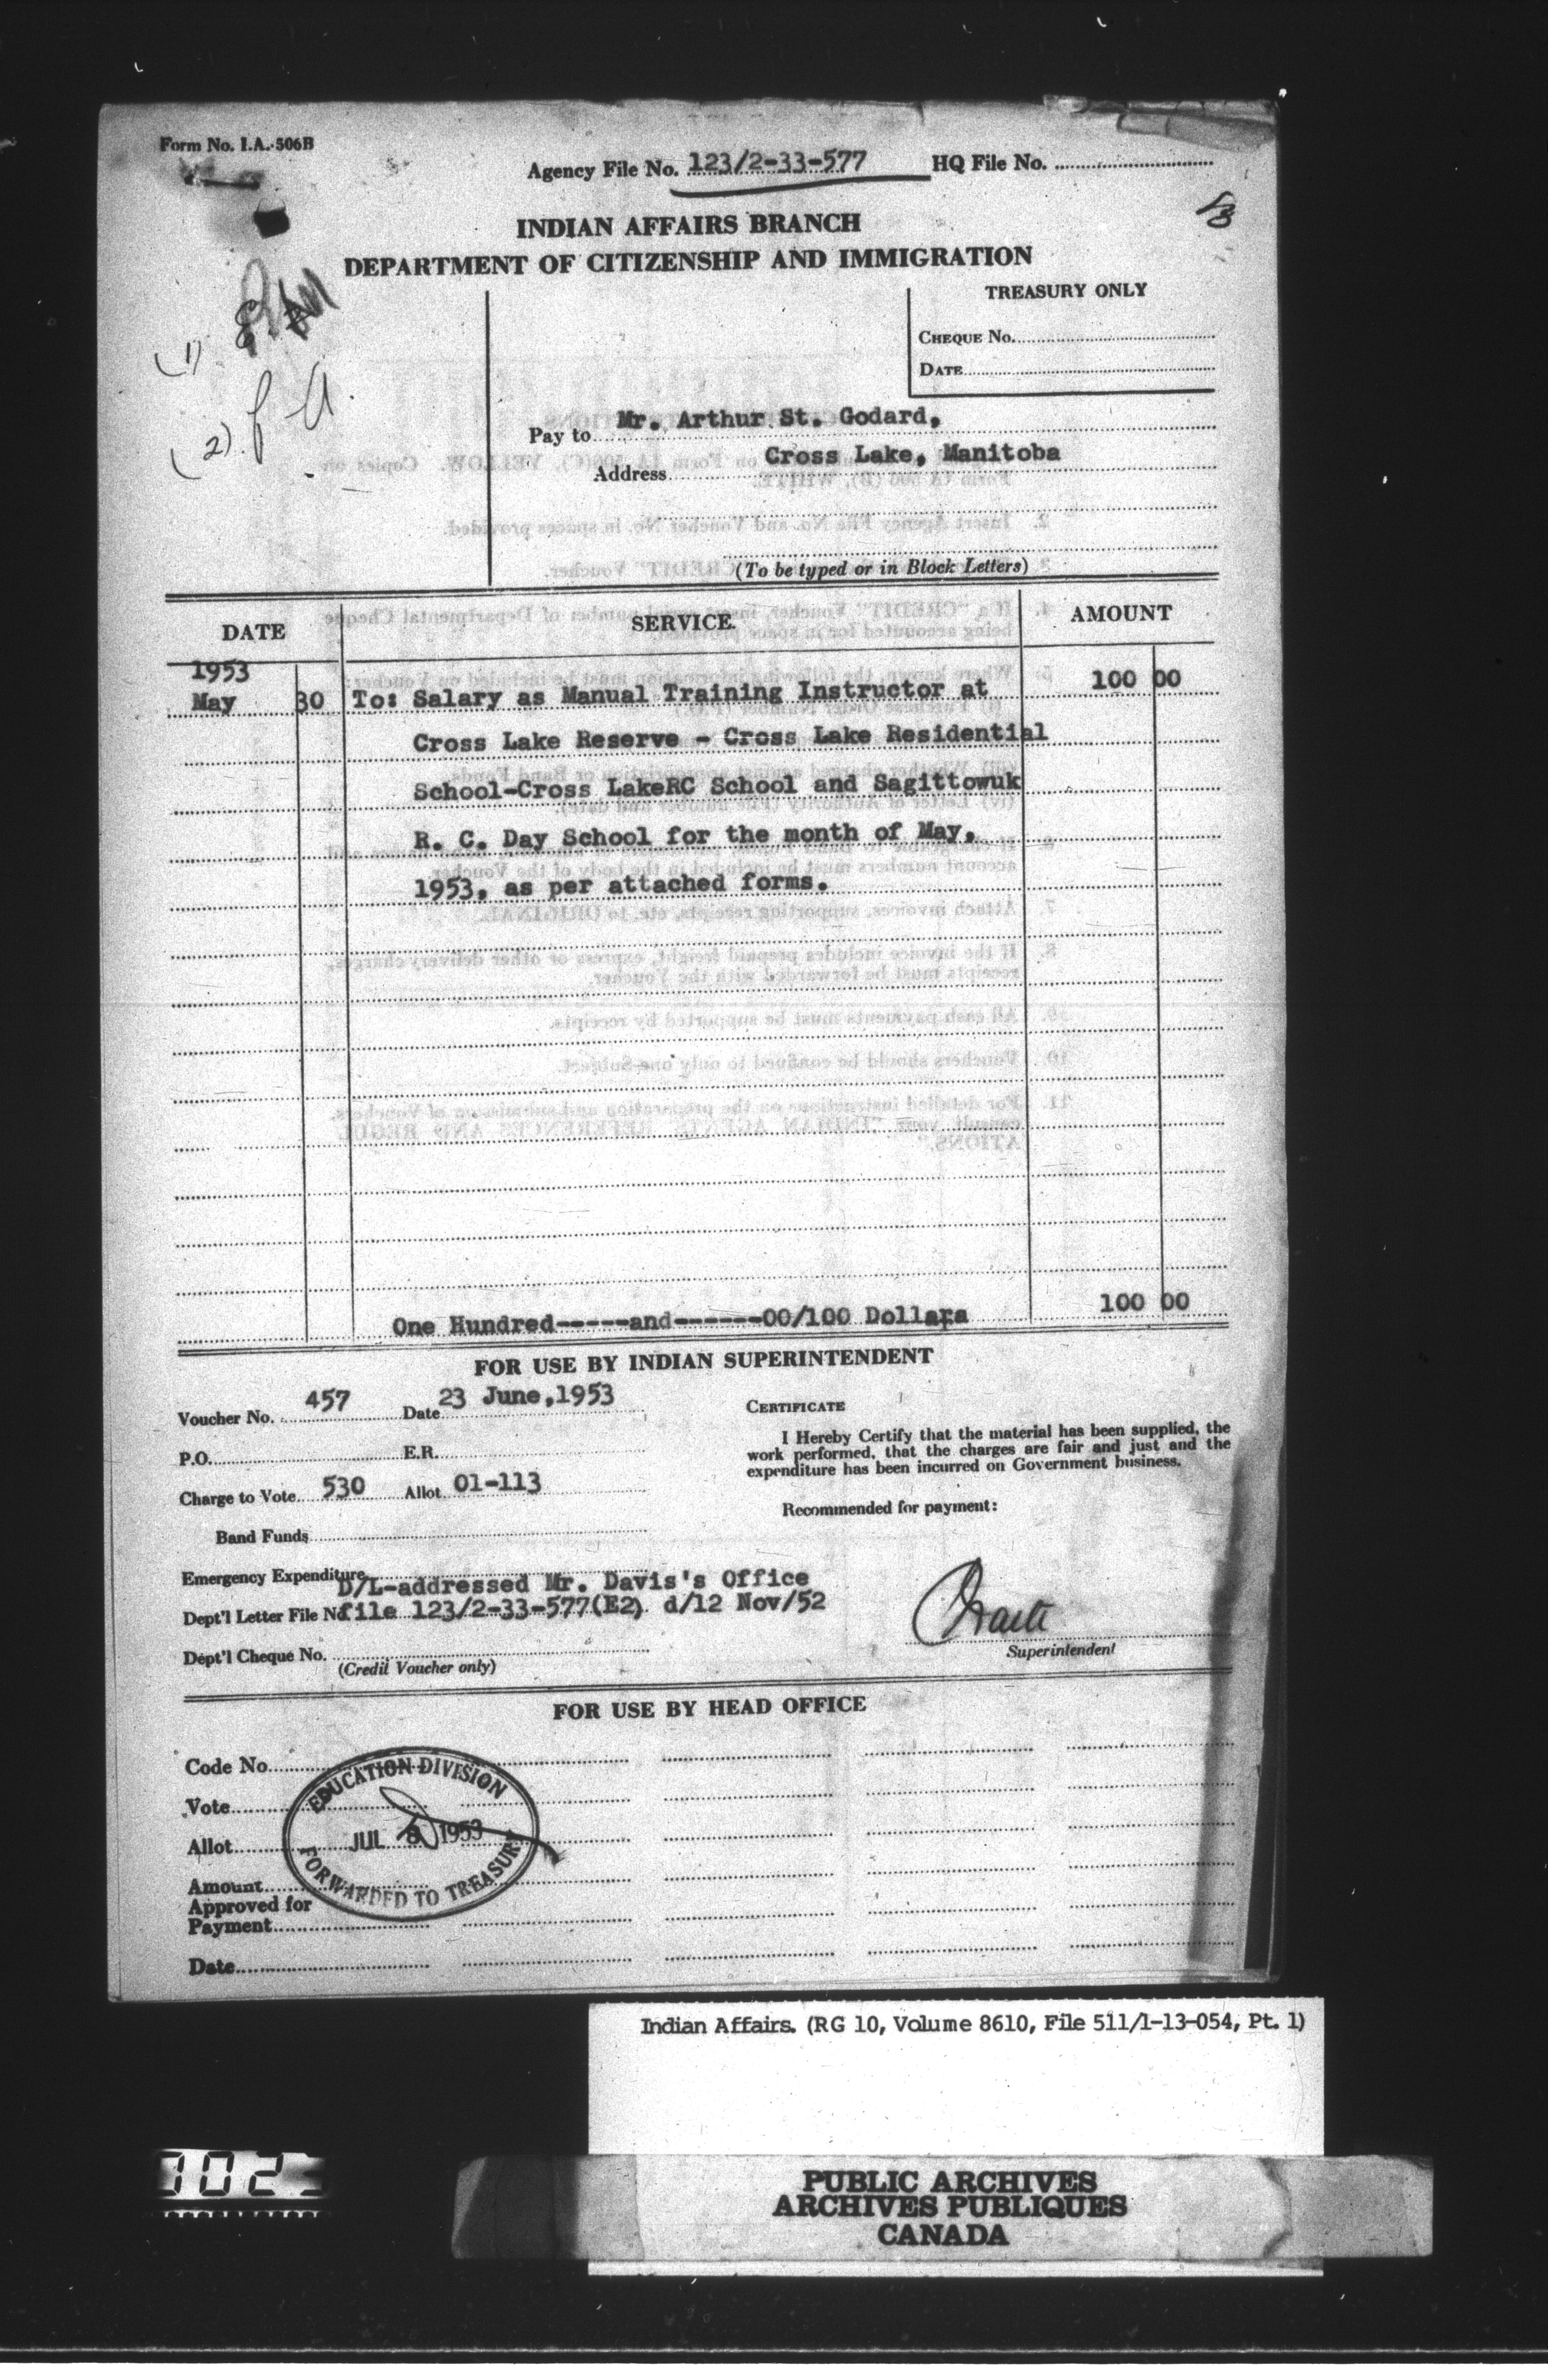 Form No. I.A. 506B
Agency File No. 123/2-33-577 HQ File No.
INDIAN AFFAIRS BRANCH
DEPARTMENT OF CITIZENSHIP AND IMMIGRATION
TREASURY ONLY
CHEQUE No.
DATE
(1)
(2)
Pay to Mr. Arthur St. Godard,
Address Cross Lake, Manitoba
(To be typed or in Block Letters)
DATE SERVICE AMOUNT
1953
May 30 To: Salary as Manual Training Instructor at 100 00
Cross Lake Reserve - Cross Lake Residential
School-Cross LakeRC School and Sagittowuk
R. C. Day School for the month of May,
1953, as per attached forms.
One Hundred-----and------00/100 Dollars 100 00
FOR USE BY INDIAN SUPERINTENDENT
Voucher No. 457 Date 23 June,1953
P.O. E.R.
Charge to Vote 530 Allot 01-113
Band Funds
Emergency Expenditure
D/L-addressed Mr. Davis's Office
Dept'l Letter File No file 123/2-33-577(E2) d/12 Nov/52
Dept'l Cheque No.
(Credit Voucher only)
CERTIFICATE
I Hereby Certify that the material has been supplied, the
work performed, that the charges are fair and just and the
expenditure has been incurred on Government business.
Recommended for payment:
Superintendent
FOR USE BY HEAD OFFICE
Code No.
Vote
Allot
Amount
Approved for
Payment
Date
EDUCATION DIVISION
JUL 8 1953
FORWARDED TO TREASURY
Indian Affairs. (RG 10, Volume 8610, File 511/1-13-054, Pt. 1)
PUBLIC ARCHIVES
ARCHIVES PUBLIQUES
CANADA